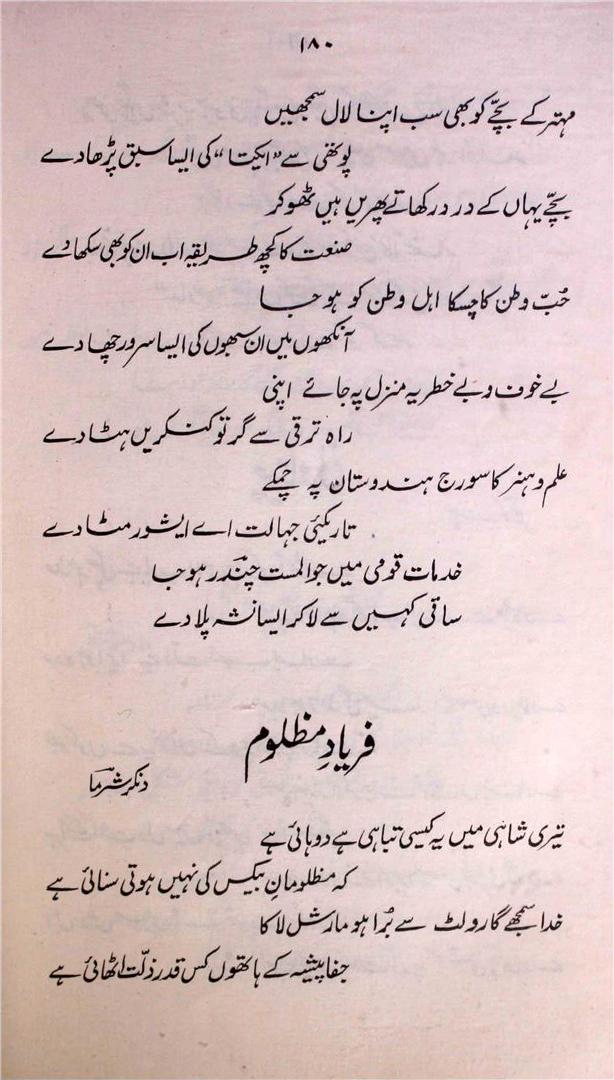 ۱۸۰
مہتر کے بچّے کو بھی سب اپنا لال سمجھیں
پوتھی سے "ایکتا" کی ایسا سبق پڑھا دے
بچّے یہاں کے در در کھاتے پھریں ہیں ٹھوکر
صنعت کا کچھ طریقہ اب ان کو بھی سکھا دے
حُبّ وطن کا چسکا اہل وطن کو ہو جا
آنکھوں میں ان سبھوں کی ایسا سرور چھا دے
بے خوف و بے خطر یہ منزل پہ جائے اپنی
راہ ترقی سے گر تو کنکریں ہٹا دے
علم و ہنر کا سورج ہندوستان پہ چمکے
تاریکیٔ جہالت اے ایشور مٹا دے
خدمات قومی میں جو المست چندر ہو جا
ساقی کہیں سے لا کر ایسا نشہ پلا دے
فریادِ مظلوم
دنکر شرما
تیری شاہی میں یہ کیسی تباہی ہے دوہائی ہے
کہ مظلومانِ بیکس کی نہیں ہوتی سنائی ہے
خدا سمجھے گا رولٹ سے بُرا ہو مارشل لا کا
جفا پیشہ کے ہاتھوں کس قدر ذلّت اٹھائی ہے